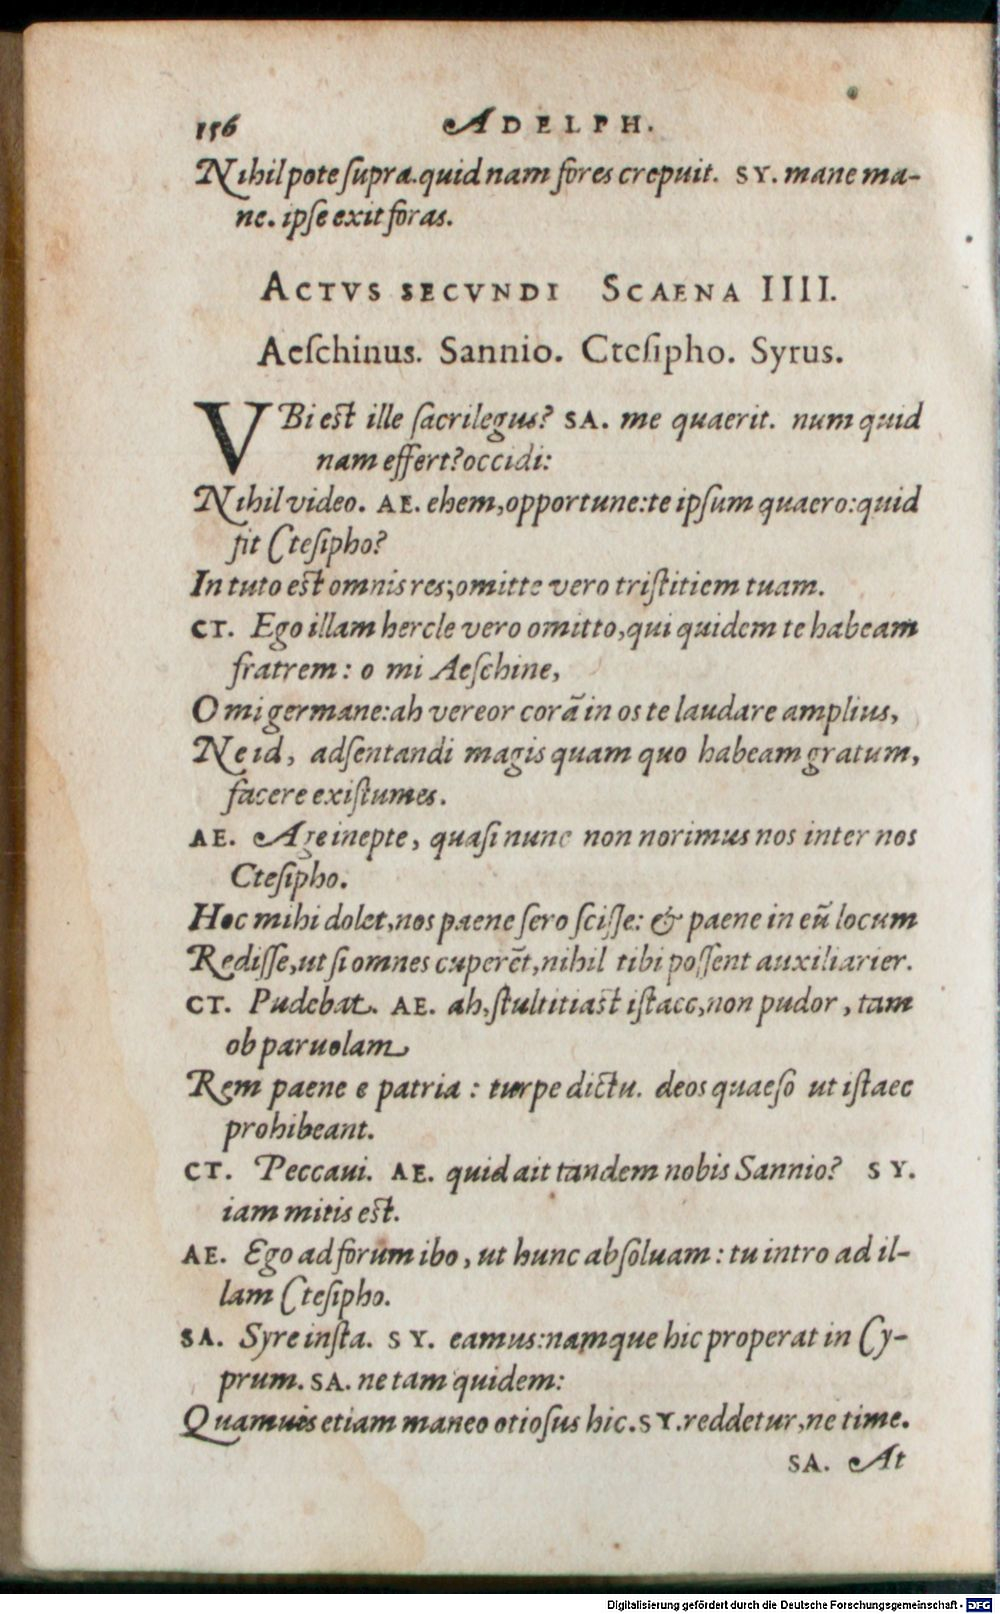 156 ADELPH.
Nihil pote supra. quid nam fores crepuit. SY. mane ma-
ne. ipse exit foras.
ACTVS SECVNDI SCAENA IIII.
Aeschinus. Sannio. Ctesipho. Syrus.
VBi est ille sacrilegus? SA. me quaerit. num quid
nam effert? occidi:
Nihil video. AE. ehem, opportune: te ipsum quaero: quid
fit Ctesipho?
In tuto est omnis res; omitte vero tristitiem tuam.
CT. Ego illam hercle vero omitto, qui quidem te habeam
fratrem: o mi Aeschine,
O mi germane: ah vereor corã in os te laudare amplius,
Ne id, adsentandi magis quam quo habeam gratum,
facere existumes.
AE. Age inepte, quasi nunc non norimus nos inter nos
Ctesipho.
Hoc mihi dolet, nos paene sero scisse: & paene in eũ locum
Redisse, ut si omnes cuperẽt, nihil tibi possent auxiliarier.
CT. Pudebat. AE. ah, stultitiast istaec, non pudor, tam
ob paruolam
Rem paene e patria: turpe dictu. deos quaeso ut istaec
prohibeant.
CT. Peccaui. AE. quid ait tandem nobis Sannio? SY.
iam mitis est.
AE. Ego ad forum ibo, ut hunc absoluam: tu intro ad il-
lam Ctesipho.
SA. Syre insta. SY. eamus: namque hic properat in Cy-
prum. SA. ne tam quidem:
Quamuis etiam maneo otiosus hic. SY. reddetur, ne time.
SA. At
Digitalisierung gefördert durch die Deutsche Forschungsgemeinschaft - DFG